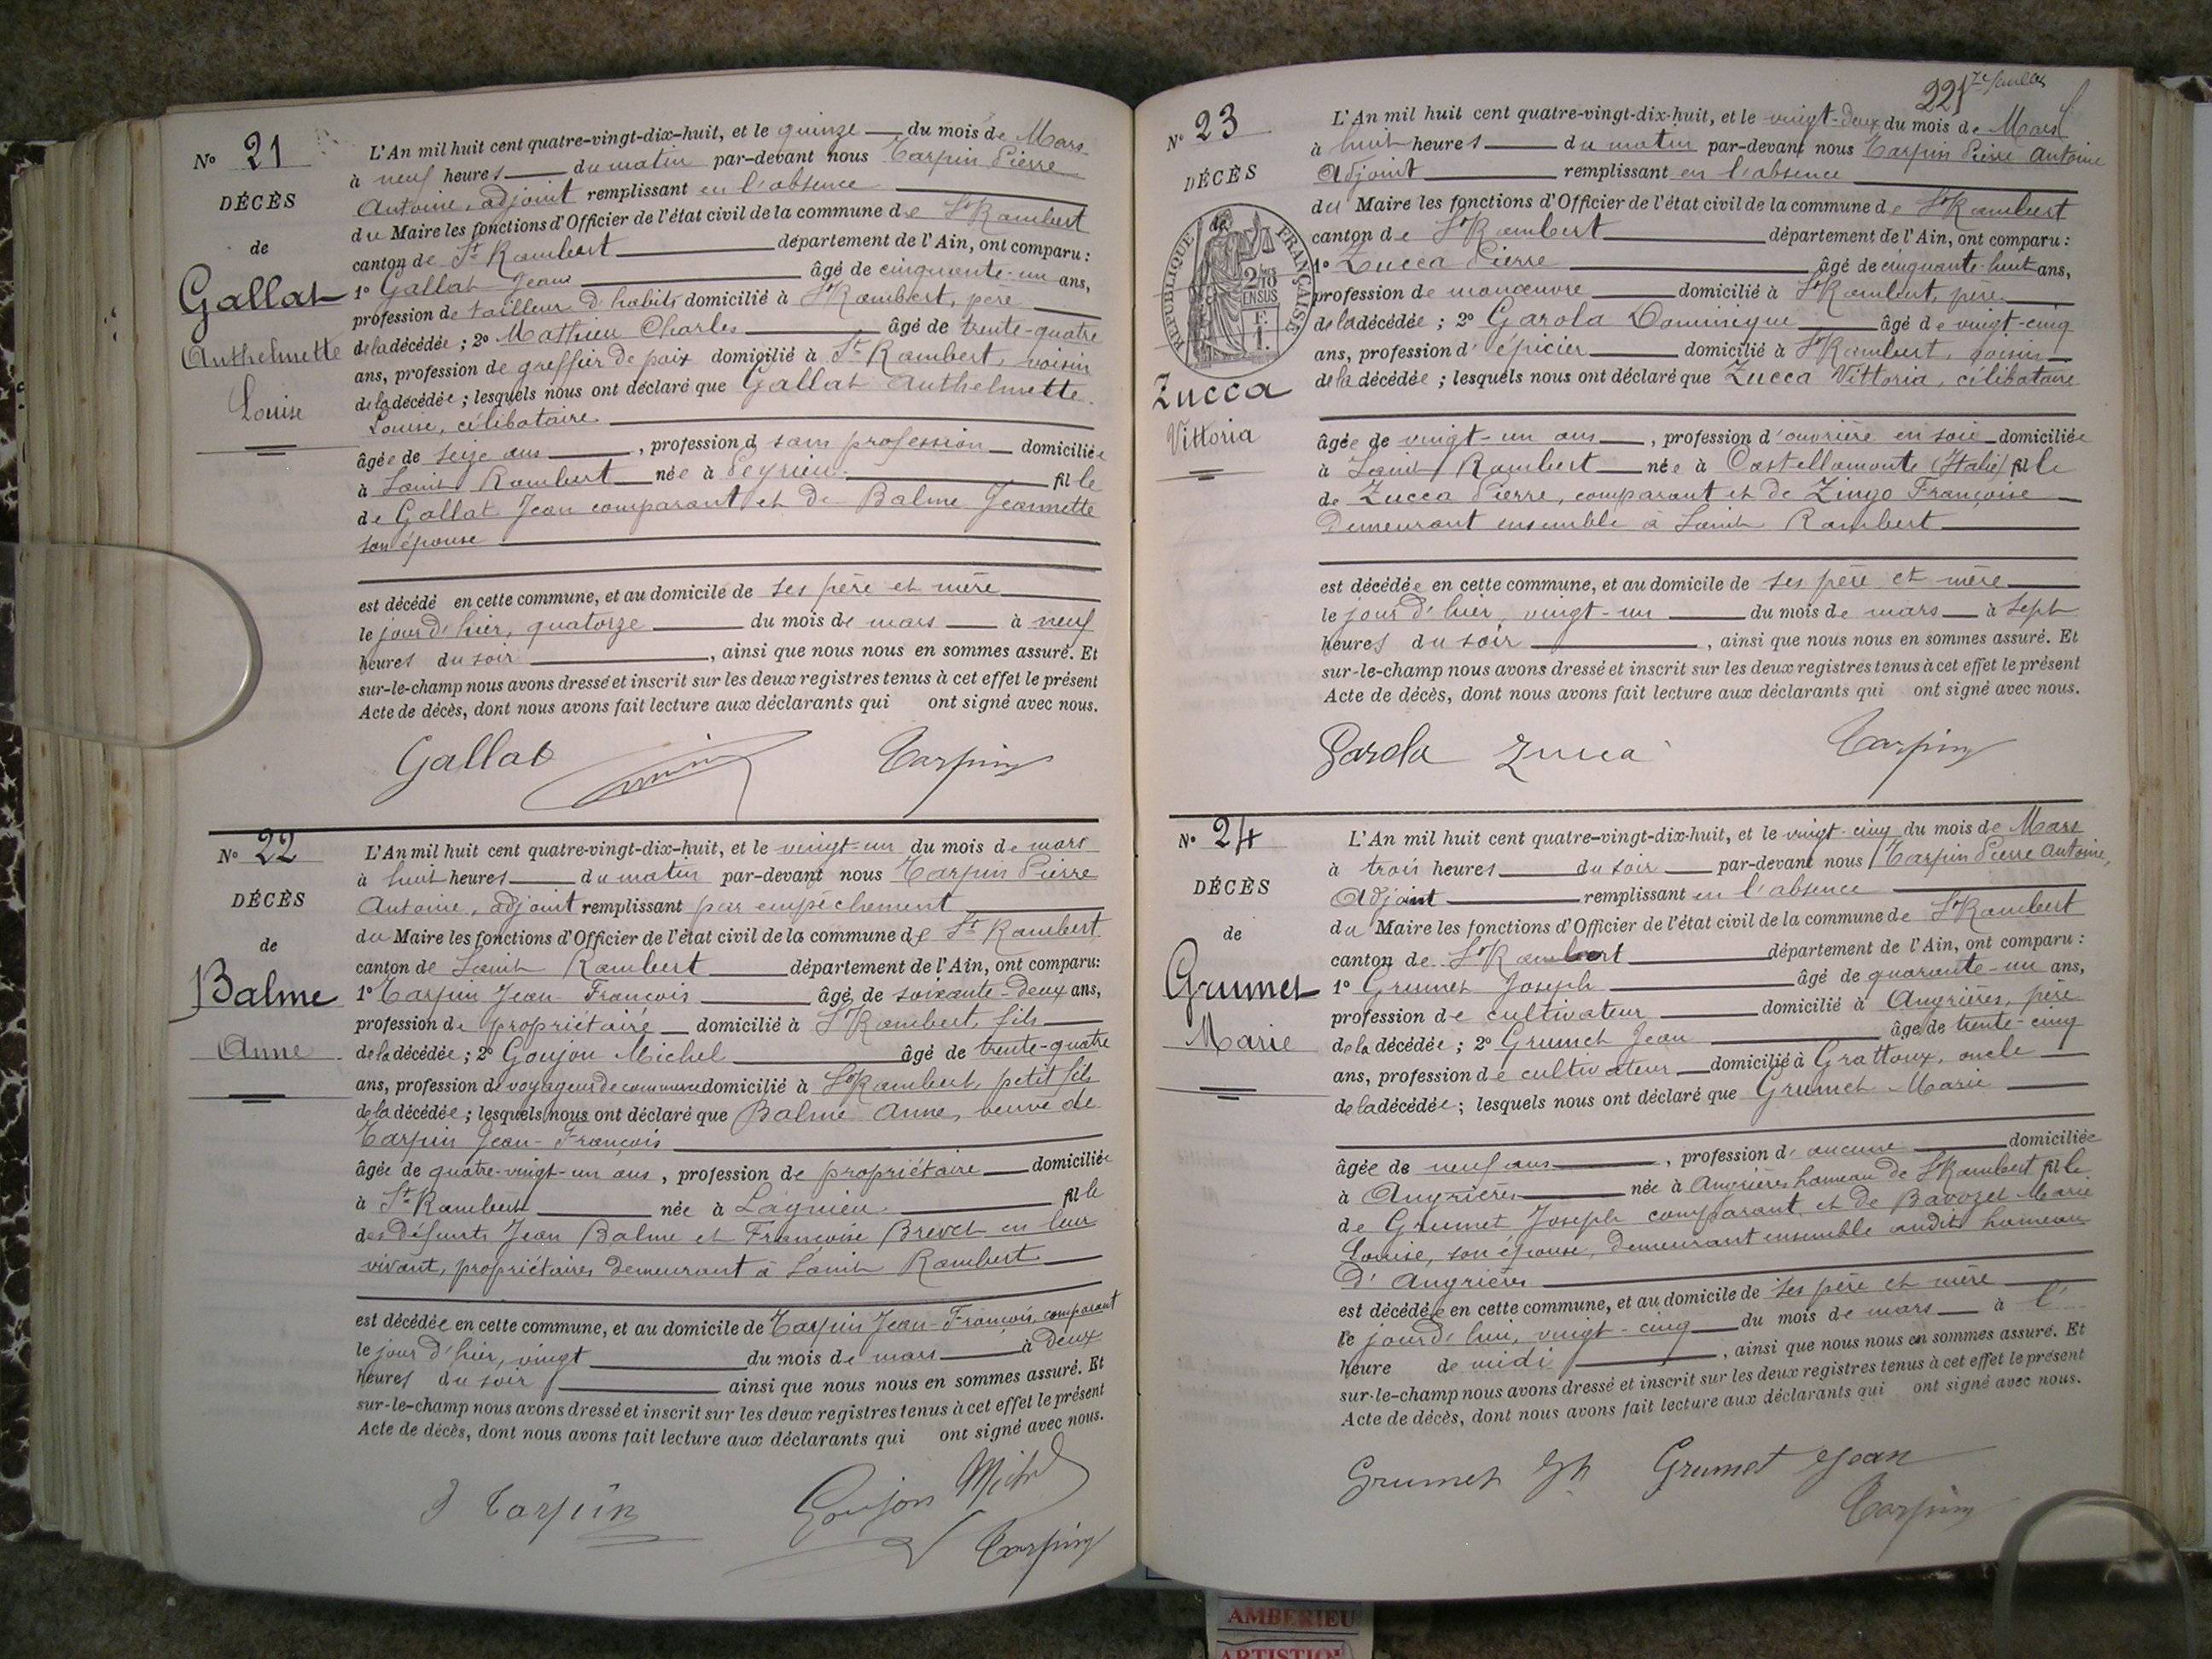 No 21
DÉCÈS
de
Gallat
Anthelmette
Louise
L'An mil huit cent quatre-vingt-dix-huit, et le quinze du mois de Mars
à neuf heures du matin par-devant nous Tarpin Pierre
Antoine, adjoint remplissant en l'absence
du Maire les fonctions d'Officier de l'état civil de la commune de St Rambert
canton de St Rambert département de l'Ain, ont comparu:
1o Gallat Jean âgé de cinquante-un ans,
profession de tailleur d'habits domicilié à St Rambert, père
de la décédée; 2o Mathieu Charles âgé de trente-quatre
ans, profession de greffier de paix domicilié à St Rambert, voisin
de la décédée; lesquels nous ont déclaré que Gallat Anthelmette
Louise, célibataire
âgée de seize ans, profession d sans profession domiciliée
à Saint Rambert née à Peyrieu fille
de Gallat Jean comparant et de Balme Jeannette
son épouse
est décédé en cette commune, et au domicile de ses père et mère
le jour d'hier, quatorze du mois de mars à neuf
heures du soir, ainsi que nous nous en sommes assuré. Et
sur-le-champ nous avons dressé et inscrit sur les deux registres tenus à cet effet le présent
Acte de décès, dont nous avons fait lecture aux déclarants qui ont signé avec nous.
Gallat Tarpin
No 22
DÉCÈS
de
Balme
Anne
L'An mil huit cent quatre-vingt-dix-huit, et le vingt-un du mois de mars
à huit heures du matin par-devant nous Tarpin Pierre
Antoine, adjoint remplissant par empêchement
du Maire les fonctions d'Officier de l'état civil de la commune de St Rambert
canton de Saint Rambert département de l'Ain, ont comparu:
1o Tarpin Jean-François âgé de soixante-deux ans,
profession de propriétaire domicilié à St Rambert, fils
de la décédée; 2o Goujon Michel âgé de trente-quatre
ans, profession de voyageur de commerce domicilié à St Rambert, petit fils
de la décédée; lesquels nous ont déclaré que Balme Anne, veuve de
Tarpin Jean-François
âgée de quatre-vingt-un ans, profession de propriétaire domiciliée
à St Rambert née à Lagnieu fille
des défunts Jean Balme et Françoise Brevet en leur
vivant, propriétaires demeurant à Saint Rambert
est décédée en cette commune, et au domicile de Tarpin Jean-François, comparant
le jour d'hier, vingt du mois de mars à deux
heures du soir ainsi que nous nous en sommes assuré. Et
sur-le-champ nous avons dressé et inscrit sur les deux registres tenus à cet effet le présent
Acte de décès, dont nous avons fait lecture aux déclarants qui ont signé avec nous.
J Tarpin Goujon Michel
Tarpin
221
No 23
DÉCÈS
de
RÉPUBLIQUE FRANÇAISE
2/10
EN SUS
F.
1.
Zucca
Vittoria
L'An mil huit cent quatre-vingt-dix-huit, et le vingt-deux du mois de Mars
à huit heures du matin par-devant nous Tarpin Pierre Antoine
Adjoint remplissant en l'absence
du Maire les fonctions d'Officier de l'état civil de la commune de St Rambert
canton de St Rambert département de l'Ain, ont comparu:
1o Zucca Pierre âgé de cinquante-huit ans,
profession de manœuvre domicilié à St Rambert, père
de la décédée; 2o Garola Dominique âgé de vingt-cinq
ans, profession d'épicier domicilié à St Rambert, voisin
de la décédée; lesquels nous ont déclaré que Zucca Vittoria, célibataire
âgée de vingt-un ans, profession d'ouvrière en soie domiciliée
à Saint Rambert née à Castellamonte (Italie) fille
de Zucca Pierre, comparant et de Zingo Françoise
demeurant ensemble à Saint Rambert
est décédée en cette commune, et au domicile de ses père et mère
le jour d'hier vingt-un du mois de mars à sept
heures du soir, ainsi que nous nous en sommes assuré. Et
sur-le-champ nous avons dressé et inscrit sur les deux registres tenus à cet effet le présent
Acte de décès, dont nous avons fait lecture aux déclarants qui ont signé avec nous.
Garola Zucca Tarpin
No 24
DÉCÈS
de
Grumet
Marie
L'An mil huit cent quatre-vingt-dix-huit, et le vingt-cinq du mois de Mars
à trois heures du soir par-devant nous Tarpin Pierre Antoine,
Adjoint remplissant en l'absence
du Maire les fonctions d'Officier de l'état civil de la commune de St Rambert
canton de St Rambert département de l'Ain, ont comparu:
1o Grumet Joseph âgé de quarante-un ans,
profession de cultivateur domicilié à Angrières, père
de la décédée; 2o Grumet Jean âgé de trente-cinq
ans, profession de cultivateur domicilié à Grattoux, oncle
de la décédée; lesquels nous ont déclaré que Grumet Marie
âgée de neuf ans, profession d'aucune domiciliée
à Angrières née à Angrières hameau de St Rambert fille
de Grumet Joseph comparant et de Bavozet Marie
Louise, son épouse, demeurant ensemble audit hameau
d'Angrières
est décédée en cette commune, et au domicile de ses père et mère
le jour d'hui, vingt-cinq du mois de mars à l'
heure de midi, ainsi que nous nous en sommes assuré. Et
sur-le-champ nous avons dressé et inscrit sur les deux registres tenus à cet effet le présent
Acte de décès, dont nous avons fait lecture aux déclarants qui ont signé avec nous.
Grumet Jh Grumet Jean
Tarpin
AMBERIEU